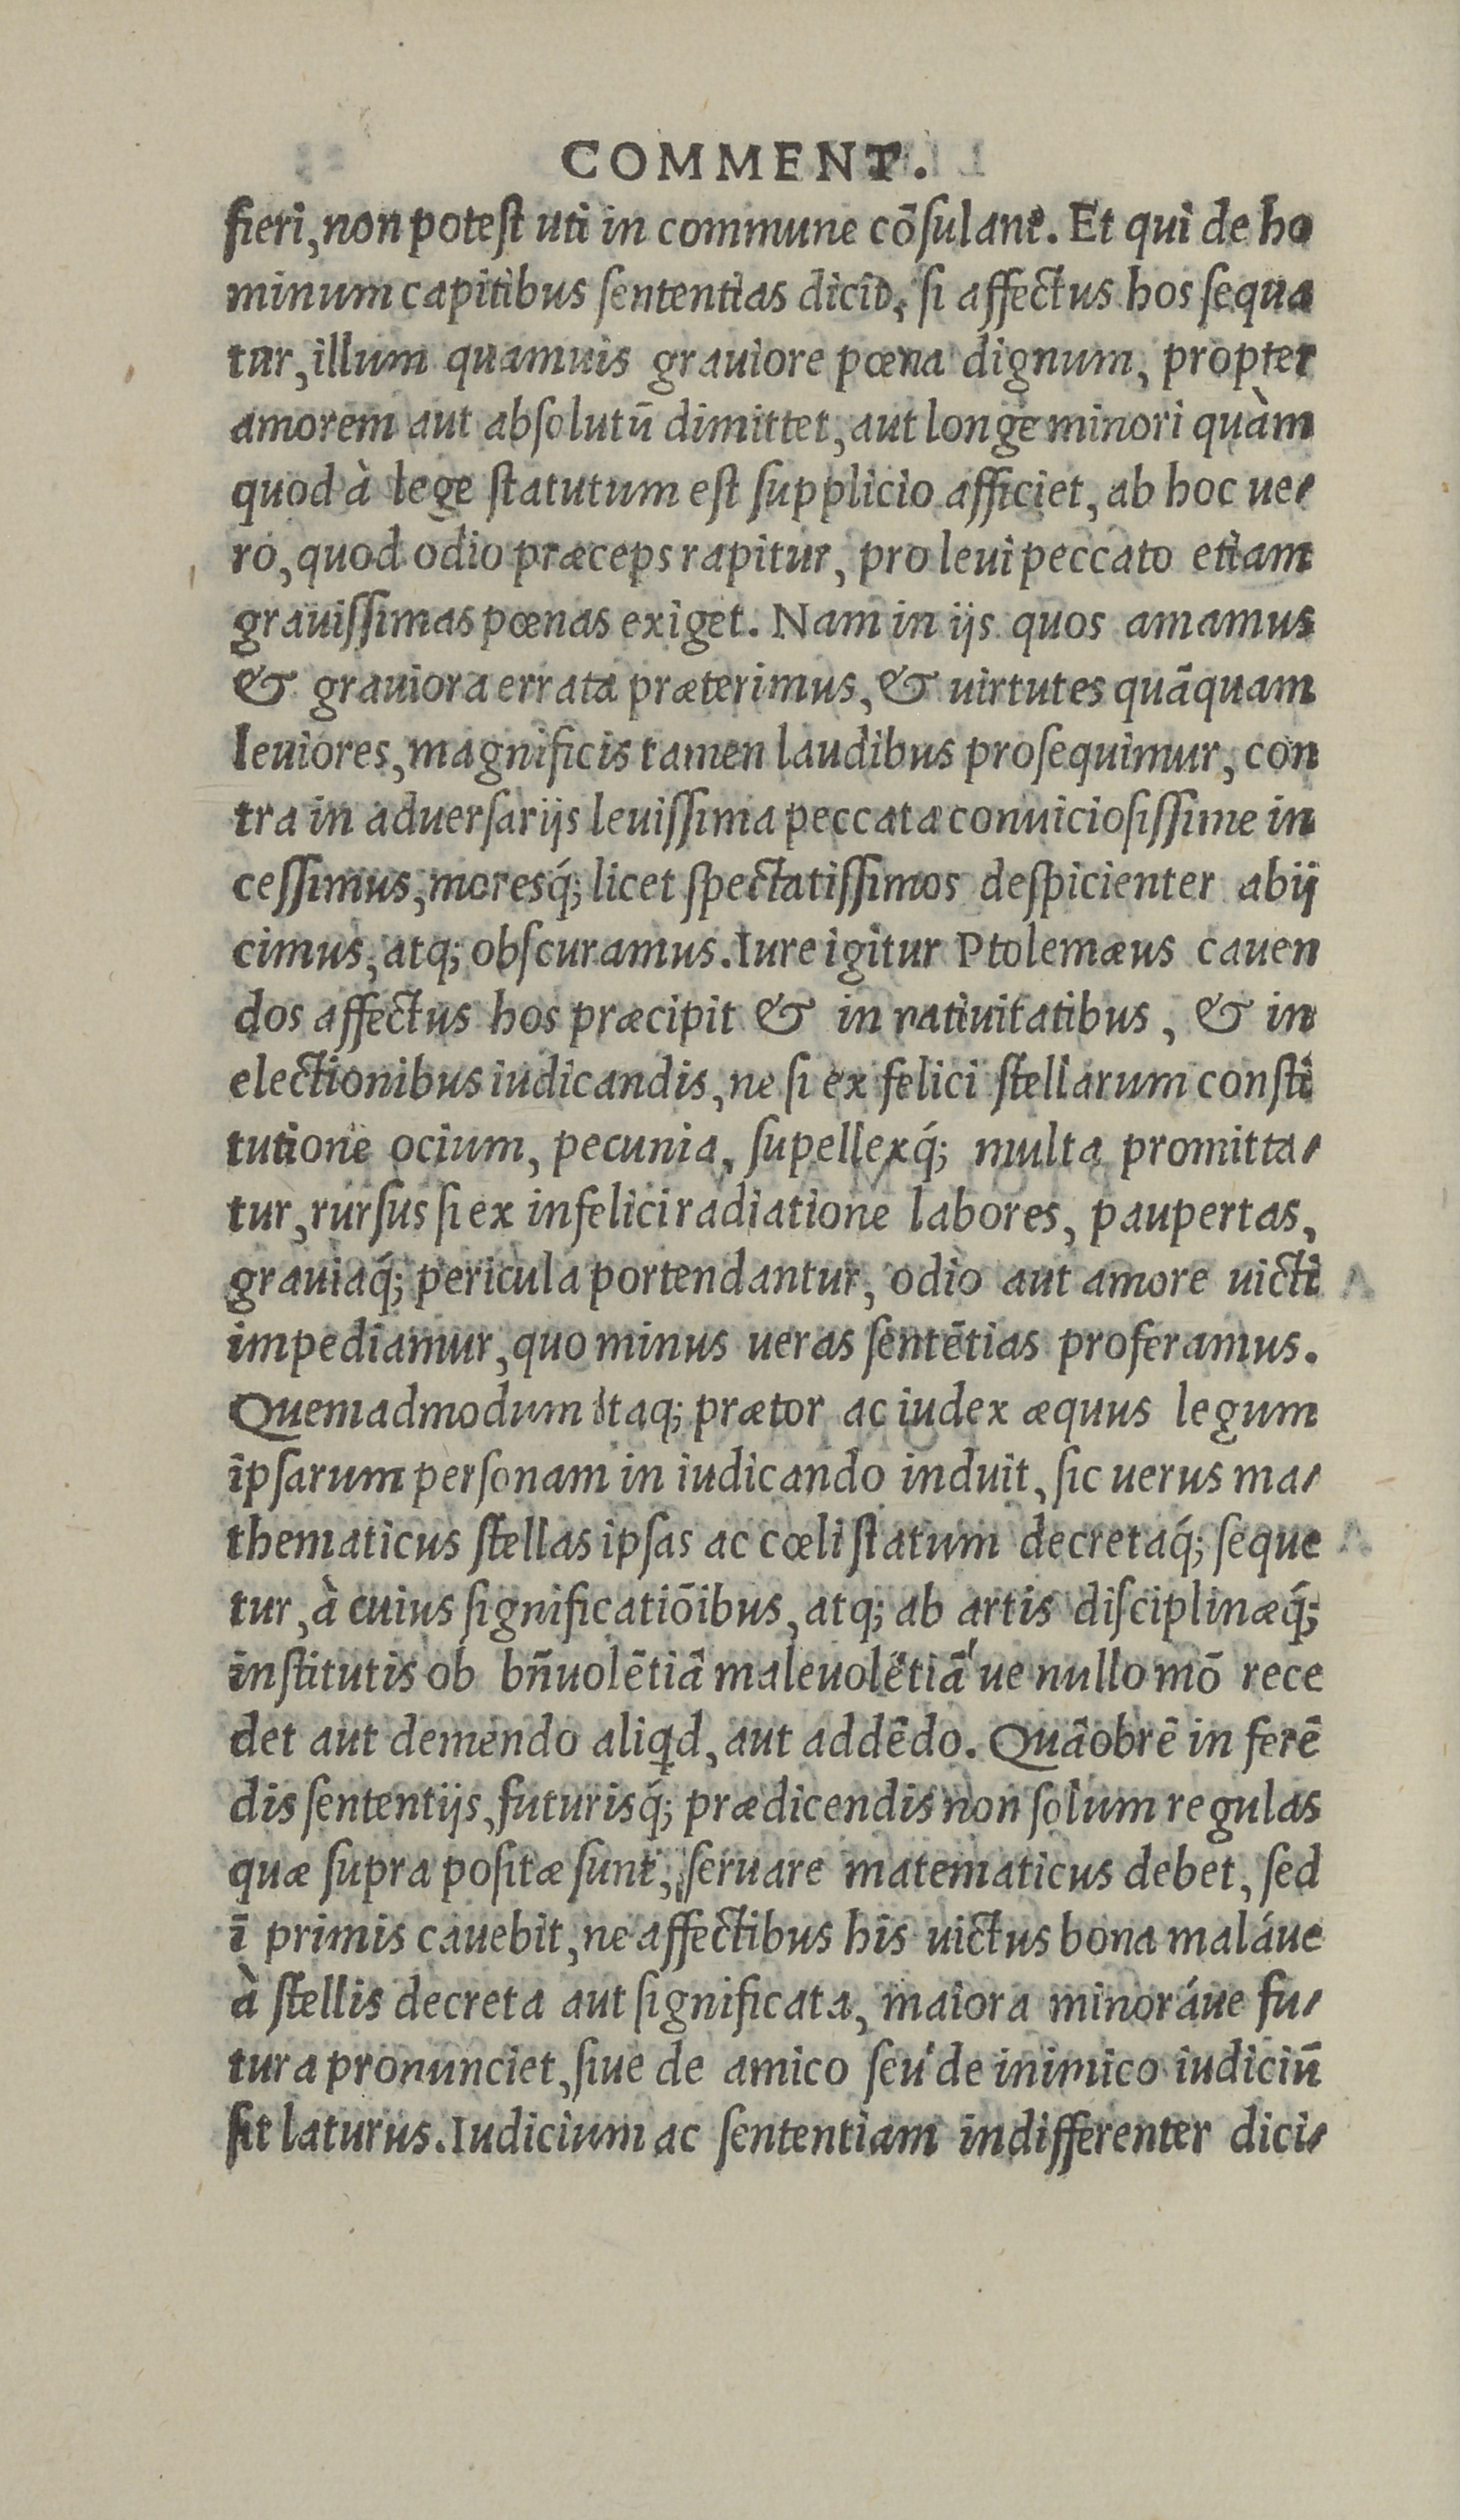 COMMENT.
fieri, non potest uti in commune cōsulant. Et qui de ho
minum capitibus sententias dicit, si affectus hos sequa
tur, illum quamuis grauiore pœna dignum, propter
amorem aut absolutū dimittet, aut longe minori quàm
quod à lege statutum est supplicio afficiet, ab hoc ue-
ro, quod odio præceps rapitur, pro leui peccato etiam
grauissimas pœnas exiget. Nam in ijs quos amamus
& grauiora errata præterimus, & uirtutes quāquam
leuiores, magnificis tamen laudibus prosequimur, con
tra in aduersarijs leuissima peccata conuiciosissime in
cessimus, moresq́; licet spectatissimos despicienter abij
cimus, atq; obscuramus. Iure igitur Ptolemæus cauen
dos affectus hos præcipit & in natiuitatibus, & in
electionibus iudicandis, ne si ex felici stellarum consti
tutione ocium, pecunia, supellexq́; multa promitta-
tur, rursus si ex infelici radiatione labores, paupertas,
grauiaq́; pericula portendantur, odio aut amore uicti
impediamur, quo minus ueras sentētias proferamus.
Quemadmodum itaq; prætor ac iudex æquus legum
ipsarum personam in iudicando induit, sic uerus ma-
thematicus stellas ipsas ac cœli statum decretaq́; seque
tur, à cuius significatiōibus, atq; ab artis disciplinæq́;
institutis ob bñuolētiā maleuolētiā'ue nullo mō rece
det aut demendo aliqd, aut addēdo. Quāobrē in ferē
dis sententijs, futurisq́; prædicendis non solum regulas
quæ supra positæ sunt, seruare matematicus debet, sed
ī primis cauebit, ne affectibus his uictus bona maláue
à stellis decreta aut significata, maiora minoráue fu-
tura pronunciet, siue de amico seu de inimico iudiciū
sit laturus. Iudicium ac sententiam indifferenter dici-